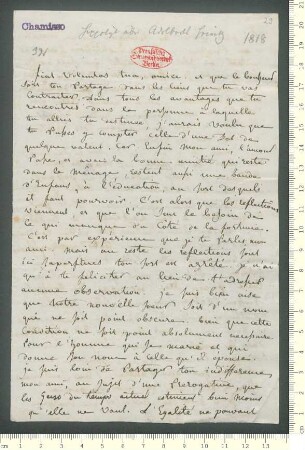 23
Chamisso
1818
391
fiat voluntas tua, amice, et que le bonheur
soit ton partage dans les liens que tu vas
contracter. dans tous les avantages que tu
rencontres dans la personne à laquelle
tu allies tu j'aurais voulu que
tu pusses y compter celle d'une dot de
quelque valeur, car enfin mon ami, l'amour
passe, et avec la bonne amitié qui reste
dans le ménage, restent aussi une bande
d'Enfans, à l'éducation, au sort desquels
il faut pourvoir. C'est alors que les reflections
viennent, et que l'on sent le besoin de
ce qui manque du côté de la fortune.
C'est par expérience que je te parle mon
ami. Mais au reste les reflections sont
ici superflues ton sort est arrêté je n'ai
qu'à te féliciter au lieu de t'adresser
aucune observation. je suis bien aise
que notre nouvelle soeur soit d'un nom
qui ne soit point obscur. bien que cette
condition ne soit point absolument nécessaire
pour l'homme qui se marie et qui
donne son nom à celle qu'il épouse.
je suis loin de partager ton indifférence,
mon ami, au sujet d'une Prerogative, que
les Gens du temps actuel estiment bien moins
qu'elle ne vaut. l'Egalité ne pouvant